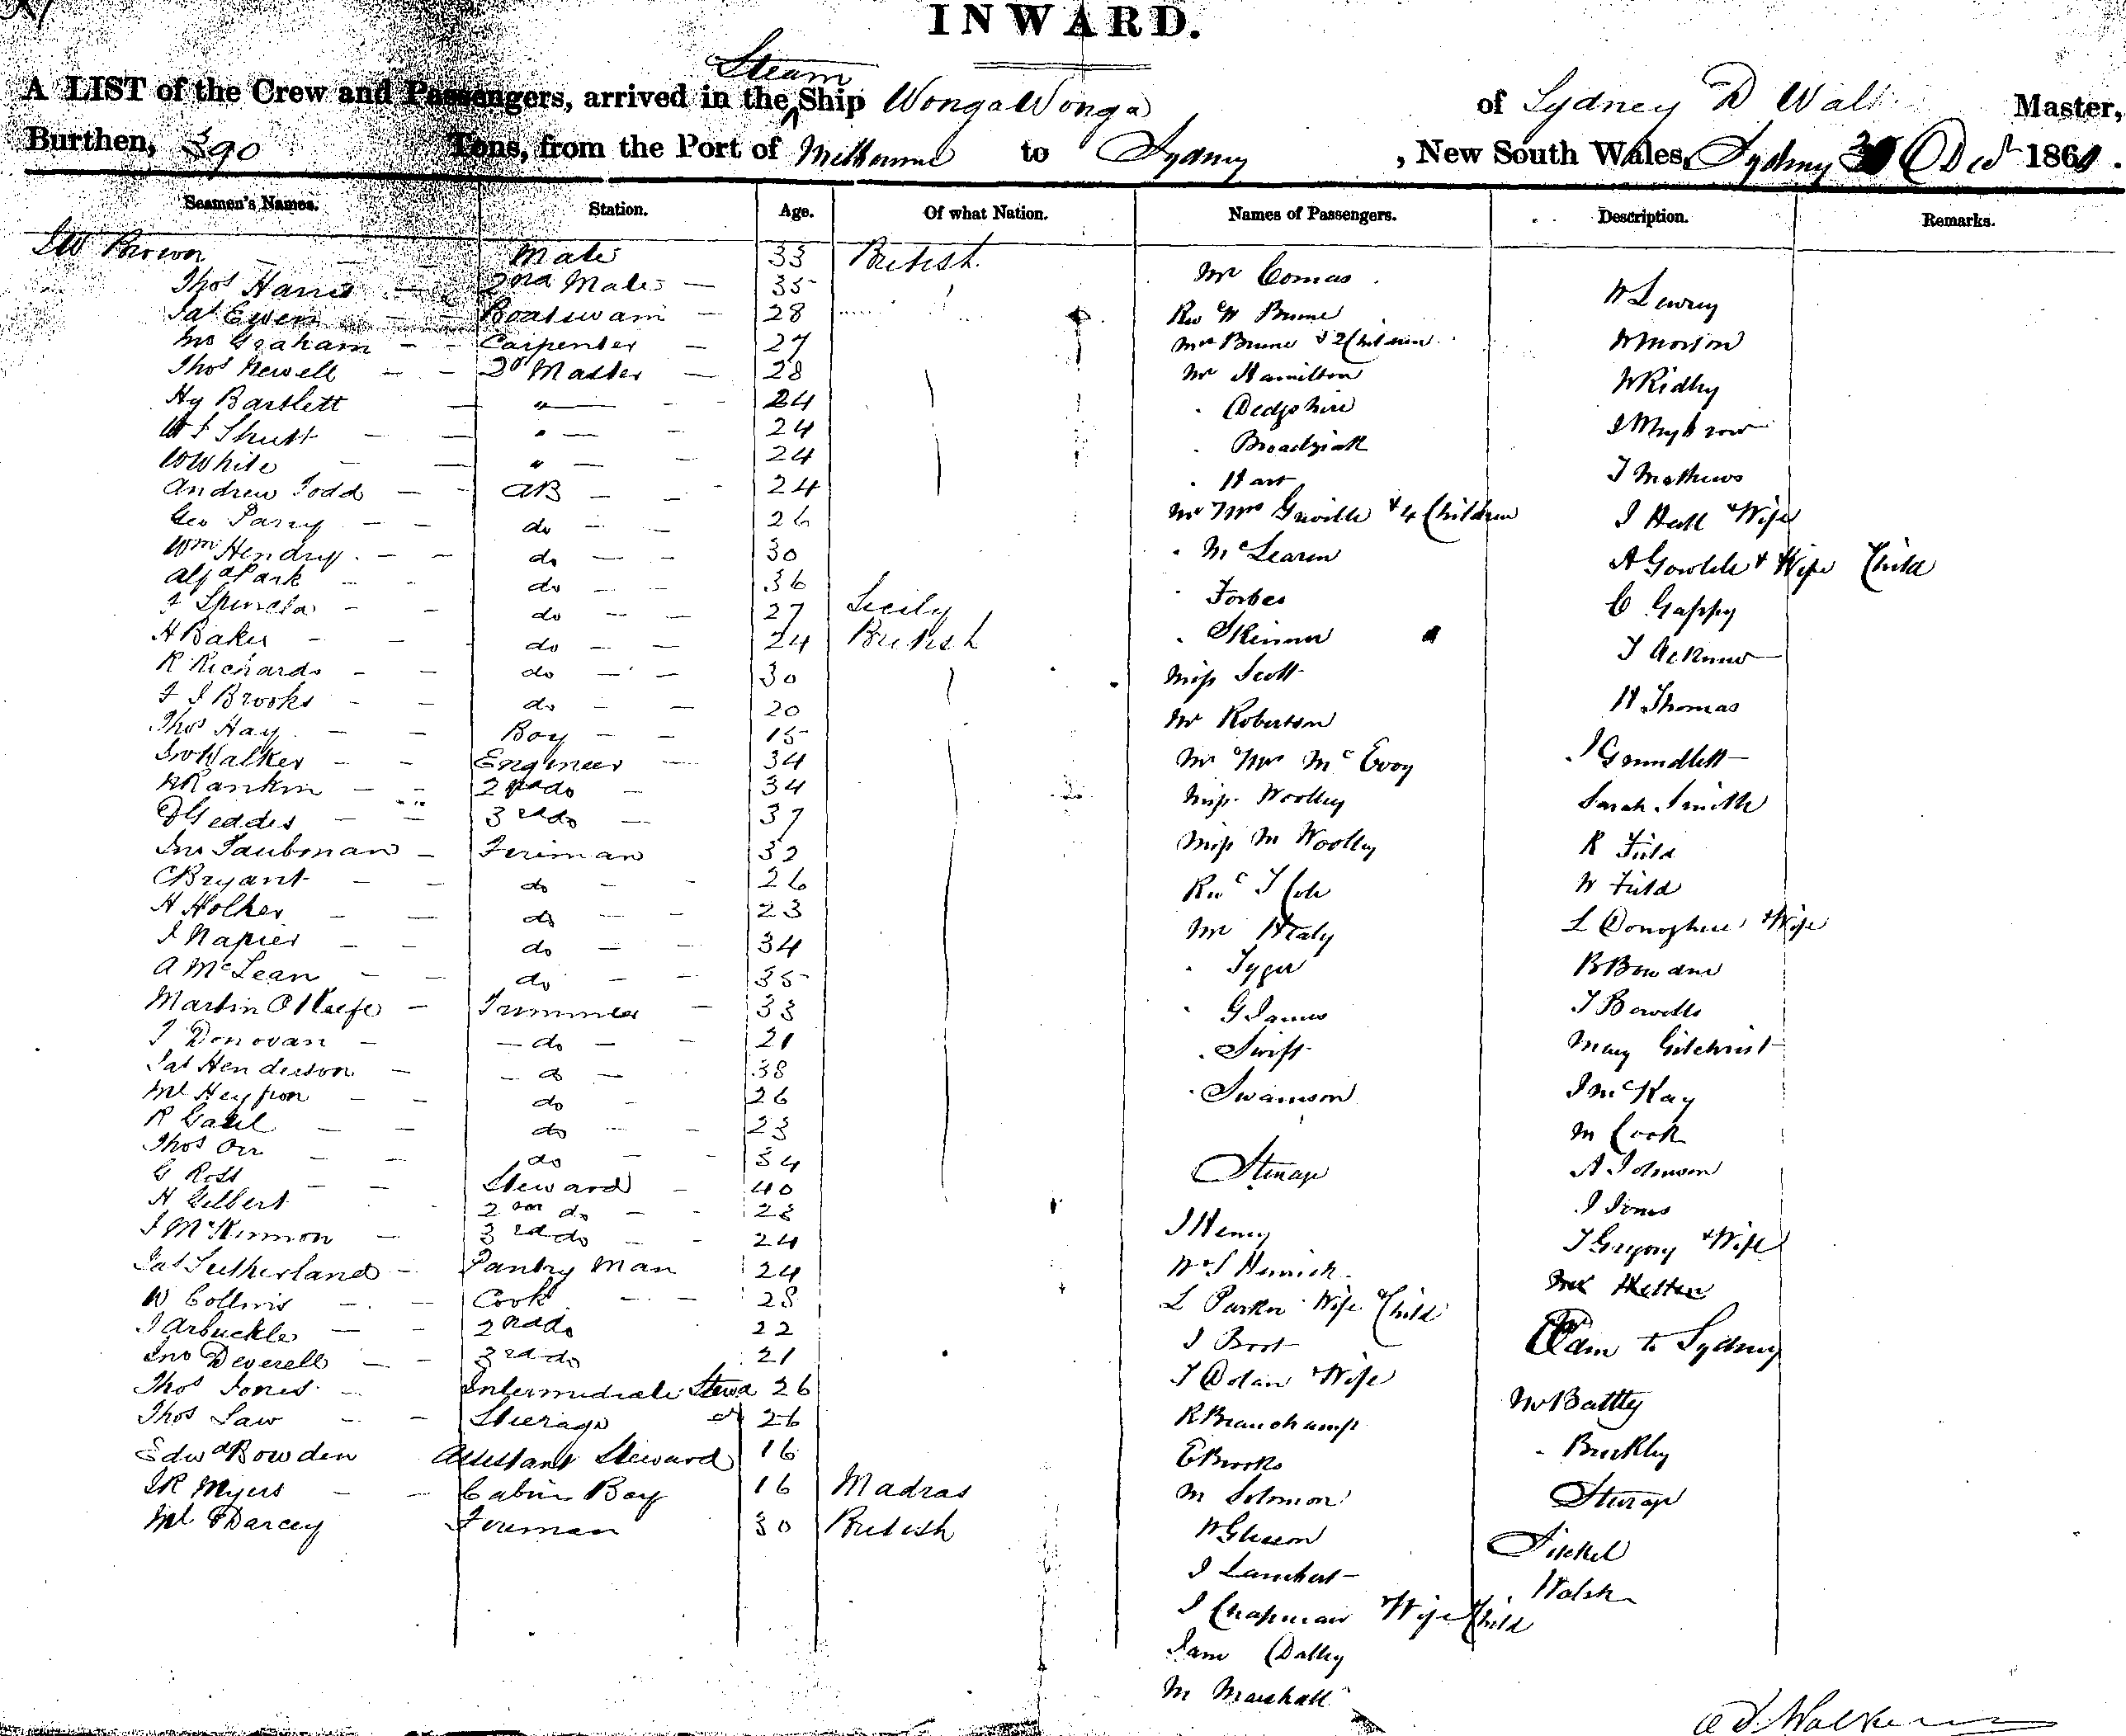 INWARD.
A LIST of the Crew and Passengers, arrived in the Steam Ship Wonga Wonga of Sydney D Walker Master,
Burthen, 390 Tons, from the Port of Melbourne to Sydney, New South Wales, Sydney Decr 186
Seamen's Names. Station. Age. Of what Nation. Names of Passengers. Description. Remarks.
Brown Mate 33 British
Thos Harris 2nd Mate 35
Jas Ewen Boatswain 28
Jno Graham Carpenter 27
Thos Newell Master 28
Hy Bartlett " 24
Shutt " 24
W White " 24
Andrew Todd AB 24
Geo Parry do 26
Wm Hendry do 30
Alfd Park do 36
do 27 Sicily
H Baker do 24 British
R Richards do 30
F J Brooks do 20
Thos Hay Boy 15
Jno Walker Engineer 34
Rankin 2nd do 34
D Geddes 3rd do 37
Jno Taubman Fireman 32
C Bryant do 26
H Holker do 23
J Napier do 34
A McLean do 35
Martin O'Keefe Trimmer 33
J Donovan do 21
Jas Henderson do 38
Ml Heffron do 26
R do 23
Thos Orr do 34
G Ross Steward 40
H Gilbert 2nd do 23
J McKinnon 3rd do 24
Jas Sutherland Pantry Man 24
W Collins Cook 28
J Arbuckle 2nd do 22
Jno Deverell 3rd do 21
Thos Jones Intermediate Stewd 26
Thos Law Steerage do 26
Edwd Bowden Assistant Steward 16
J R Myers Cabin Boy 16 Madras
Ml Darcey Fireman 30 British
Mr Comas
Rev W
Mrs & 2 Children
Mr Hamilton
Hart
Mr & Mrs Greville & 4 Children
McLearen
Forbes
Skinner
Miss Scott
Mr Robertson
Mr & Mrs McEvoy
Miss Woolley
Miss M Woolley
Revd T Cole
Mr Healy
G James
Swift
Swanson
Steerage
J Henry
L Parker Wife & Child
J Boot
T Dolan & Wife
R Beauchamp
E Brooks
M Solomon
W Gleeson
J Lambert
J Chapman & Wife & Child
Jane Dalley
M Marshall
W Lowry
W Morson
W Ridley
T Mathews
J Hall & Wife
A & Wife & Child
C Gappy
H Thomas
Sarah Smith
R Field
W Field
L Donoghue & Wife
T Bowells
Mary Gilchrist
J McKay
M Cook
A Johnson
J Jones
T Gregory & Wife
to Sydney
Mr Battley
Buckley
Steerage
Walsh
Walker